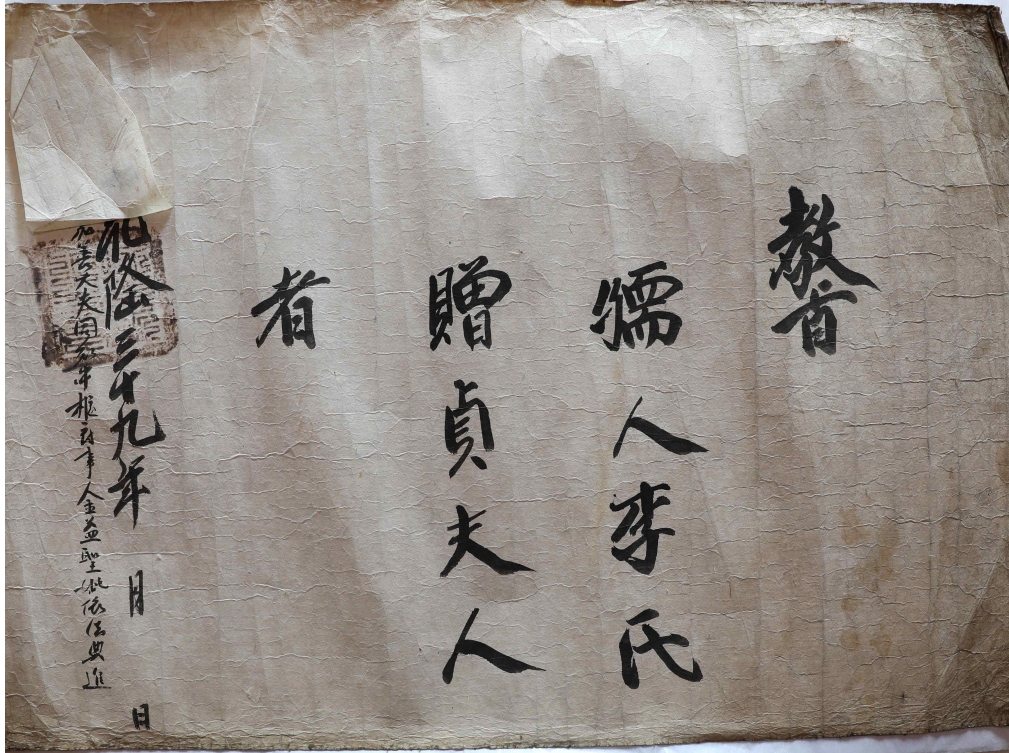 教旨
孺人李氏
贈貞夫人
者
乾隆三十九年 月 日
嘉善大夫同知中樞府事金益聖妣依法典追